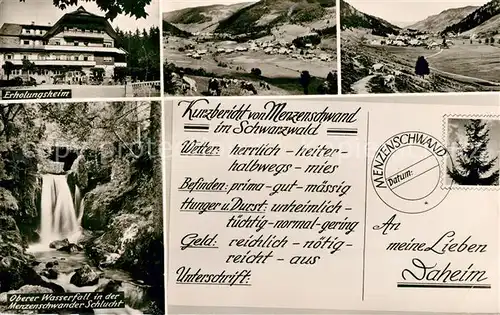 Erholungsheim
Kurzbericht von Menzenschwand
im Schwarzwald
Wetter: herrlich - heiter
halbwegs - mies
Befinden: prima - gut - mässig
Hunger u. Durst: unheimlich -
tüchtig - normal - gering
Geld: reichlich - nötig -
reicht - aus
Unterschrift:
MENZENSCHWAND
Datum:
An
meine Lieben
Daheim
Oberer Wasserfall in der
Menzenschwander Schlucht